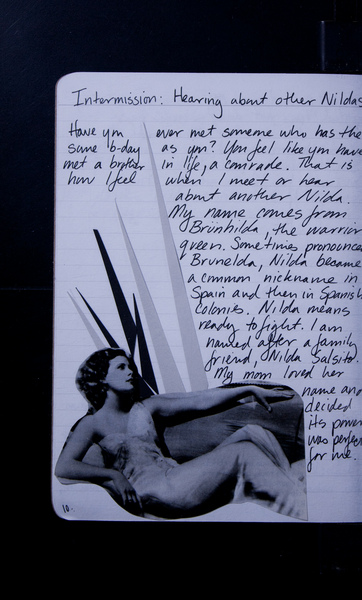 Intermission: Hearing about other Nildas
Have you ever met someone who has the
same b-day as you? You feel like you have
met a brother in life, a comrade. That is
how I feel when I meet or hear
about another Nilda.
My name comes from
Brünhilda, the warrior
queen. Sometimes pronounced
Brunelda, Nilda became
a common nickname in
Spain and then in Spanish
colonies. Nilda means
ready to fight. I am
named after a family
friend, Nilda Salsito.
My mom loved her
name and
decided
its power
was perfect
for me.
10.